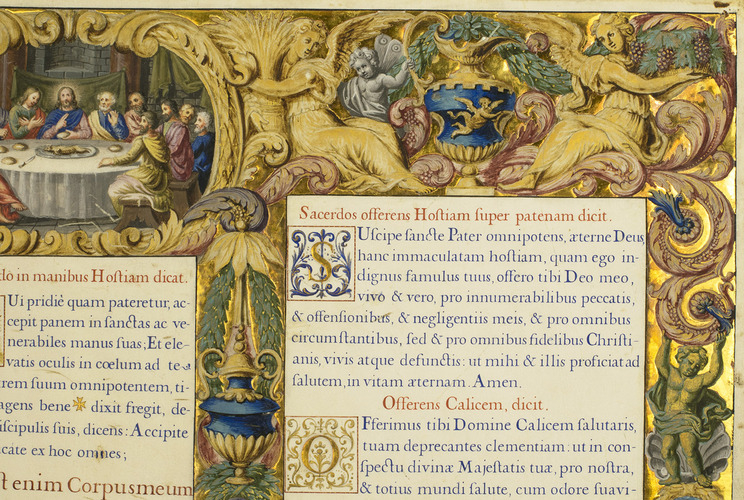 do in manibus Hoſtiam dicat.
Ui pridiè quam pateretur, ac-
cepit panem in ſanctas ac ve-
nerabiles manus ſuas; Et ele-
vatis oculis in cœlum ad te
trem ſuum omnipotentem, ti-
agens bene dixit fregit, de-
iſcipulis ſuis, dicens: Accipite
cate ex hoc omnes;
ſt enim Corpus meum
Sacerdos offerens Hoſtiam ſuper patenam dicit.
SUſcipe ſancte Pater omnipotens, æterne Deus
hanc immaculatam hoſtiam, quam ego in-
dignus famulus tuus, offero tibi Deo meo,
vivo & vero, pro innumerabilibus peccatis,
& offenſionibus, & negligentiis meis, & pro omnibus
circumſtantibus, ſed & pro omnibus fidelibus Chriſti-
anis, vivis atque defunctis: ut mihi & illis proficiat ad
ſalutem, in vitam æternam. Amen.
Offerens Calicem, dicit.
OFferimus tibi Domine Calicem ſalutaris,
tuam deprecantes clementiam: ut in con-
ſpectu divinæ Majeſtatis tuæ, pro noſtra,
& totius mundi ſalute, cum odore ſuavi-